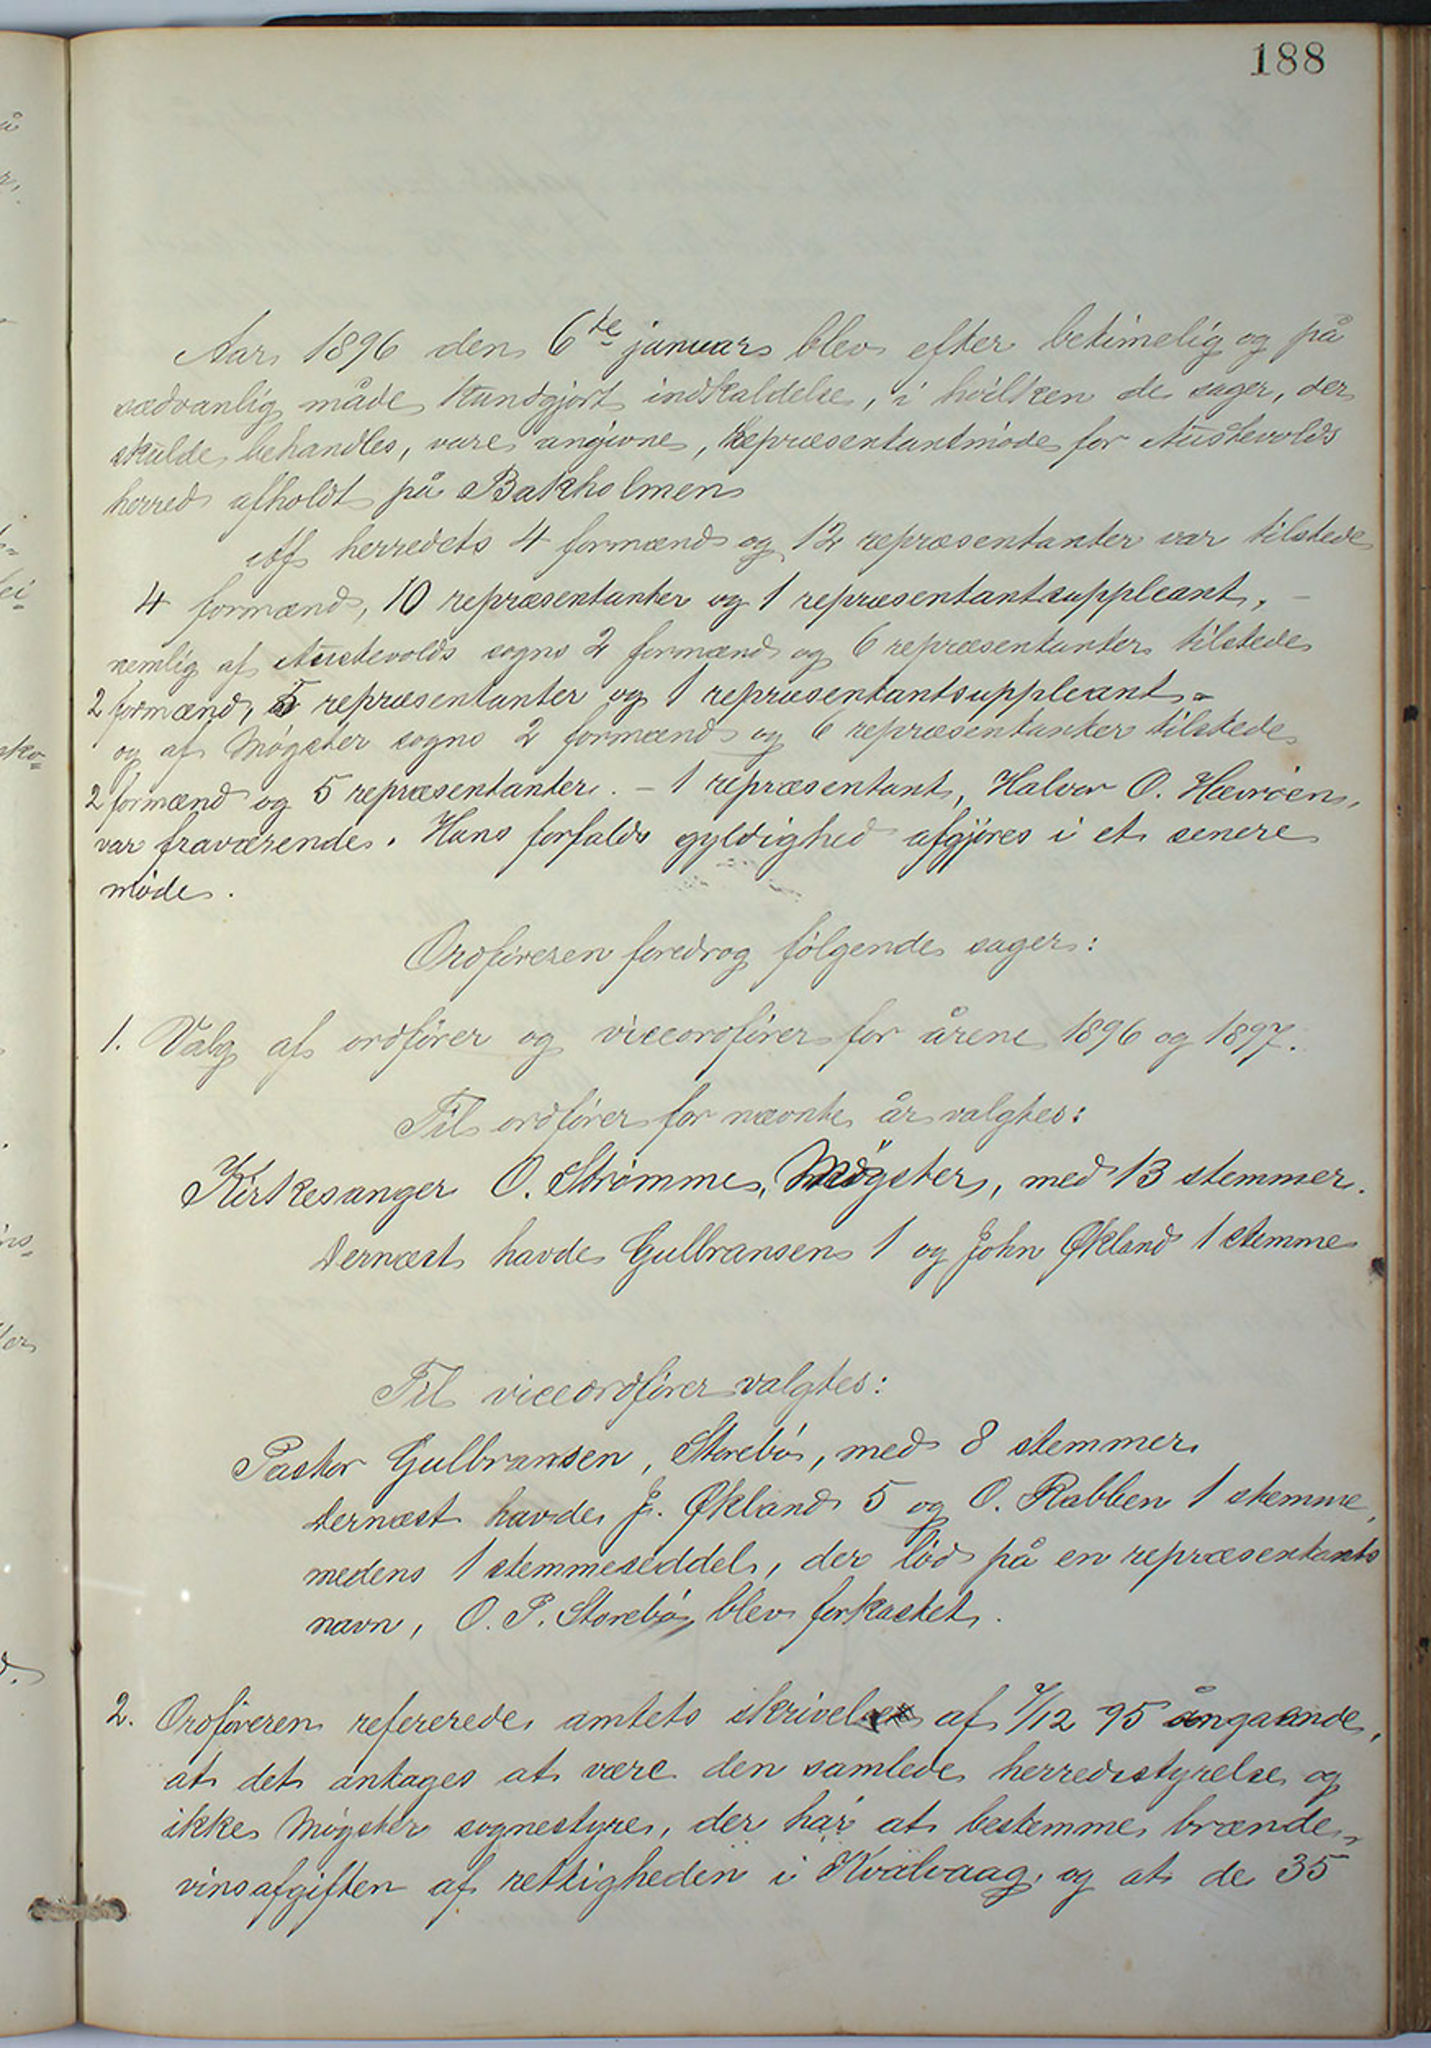 188
Aar 1896 den 6te januar blev efter betimelig og på
sædvanlig måde kundgjort indkaldelse, i hvilken de sager, der
skulde behandles, vare angivne, repræsentantmøde for Austevolds
herred afholdt på Bakholmen
Af herredets 4 formænd og 12 repræsentanter var tilstede
4 formænd, 10 repræsentanter og 1 repræsentantsuppleant, -
nemlig af Austevolds sogns 2 formænd og 6 repræsentanter tilstede
2 formænd, 5 repræsentanter og 1 repræsentantsuppleant -
og af Møgster sogns 2 formænd og 6 repræsentanter tilstede
2 formænd og 5 repræsentanter. - 1 repræsentant, Halvor O. Hevrøen,
var fraværende. Hans forfalds gyldighed afgjøres i et senere
møde.
Ordføreren foredrog følgende sager:
1. Valg af ordfører og viceordfører for årene 1896 og 1897.
Til ordfører for nævnte år valgtes:
Kirkesanger O. Strømme, Møgster, med 13 stemmer.
Dernæst havde Gulbransen 1 og John Økland 1 stemme
Til viceordfører valgtes:
Pastor Gulbransen, Storebø, med 8 stemmer
Dernæst havde J. Økland 5 og O. Rabben 1 stemme,
medens 1 stemmeseddel, der lød på en repræsentants
navn, O. P. Storebø, blev forkastet.
2. Ordføreren refererede amtets skrivelse af 7/12 95 angaaende,
at det antages at være den samlede herredsstyrelse og
ikke Møgster sognestyre, der har at bestemme brænde-
vinsafgiften af rettigheden i Kvalvaag, og at de 35